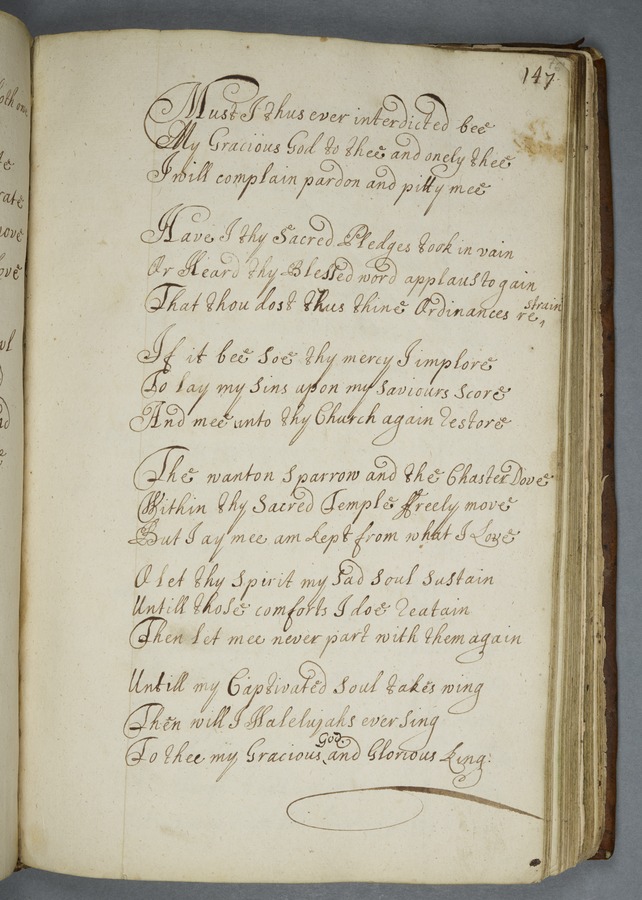 147
Must I thus ever interdicted bee
My Gracious God to thee and onely thee
I will complain pardon and pitty mee
Have I thy Sacred Pledges took in vain
Or Heard thy Blessed word applaus to gain
That thou dost thus thine Ordinances re strain
If it bee soe thy mercy I implore
To lay my sins upon my Saviours score
And mee unto thy Church again restore
The wanton Sparrow and the Chaster Dove
Within thy Sacred Temple ffreely move
But I ay mee am kept from what I Love
O let thy Spirit my sad soul sustain
Untill those comforts I doe reatain
Then let mee never part with them again
Untill my Captivated soul takes wing
Then will I Halelujahs ever sing
To thee my Gracious God and Glorious King: